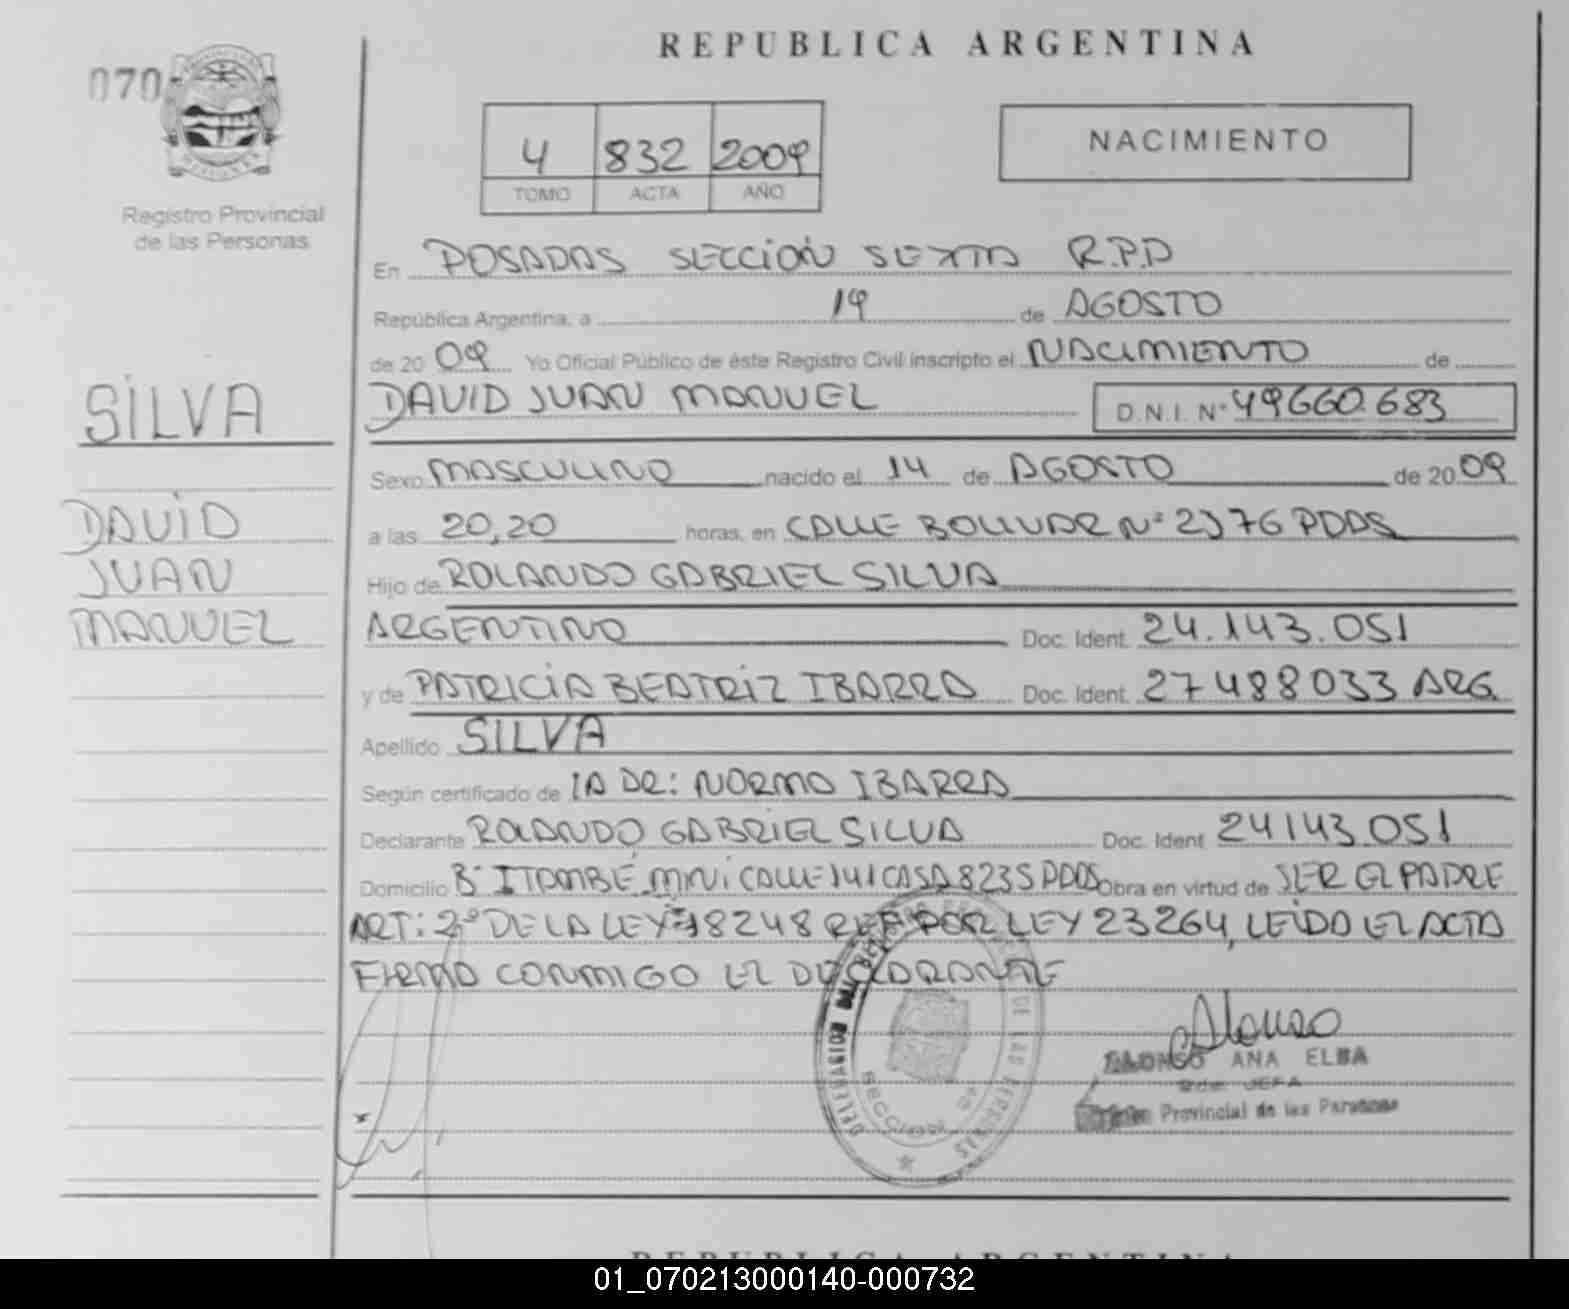 REPUBLICA ARGENTINA
070
4 832 2009
TOMO ACTA AÑO
NACIMIENTO
Registro Provincial
de las Personas
En POSADAS SECCIÓN SEXTA R.P.D
República Argentina, a 19 de AGOSTO
de 2009 Yo Oficial Público de éste Registro Civil inscripto el NACIMIENTO de
SILVA
DAVID JUAN MANUEL D.N.I. Nº 49660.683
Sexo MASCULINO nacido el 14 de AGOSTO de 2009
DAVID
a las 20,20 horas, en CALLE BOLIVAR Nº 2376 PDAS
JUAN
Hijo de ROLANDO GABRIEL SILVA
MANUEL
ARGENTINO Doc. Ident. 24.143.051
y de PATRICIA BEATRIZ IBARRA Doc. Ident. 27488033 ARG.
Apellido SILVA
Según certificado de LA DR: NORMA IBARRA
Declarante ROLANDO GABRIEL SILVA Doc. Ident 24143.051
Domicilio Bº ITAMBÉ MINI CALLE 141 CASA 8235 PDAS Obra en virtud de SER EL PADRE
ART: 2º DE LA LEY 18248 REF POR LEY 23264, LEIDO EL ACTA
FIRMA CONMIGO EL DECLARANTE
Alonso
ALONSO ANA ELBA
JEFA
Provincial de las Personas
SECCION 6ª
REPUBLICA ARGENTINA
01_070213000140-000732